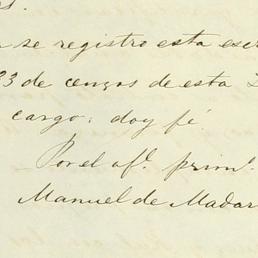 se registro esta esc
3 de censos de esta
cargo: doy fé.
Por el ofl. primo.
Manuel de Madar